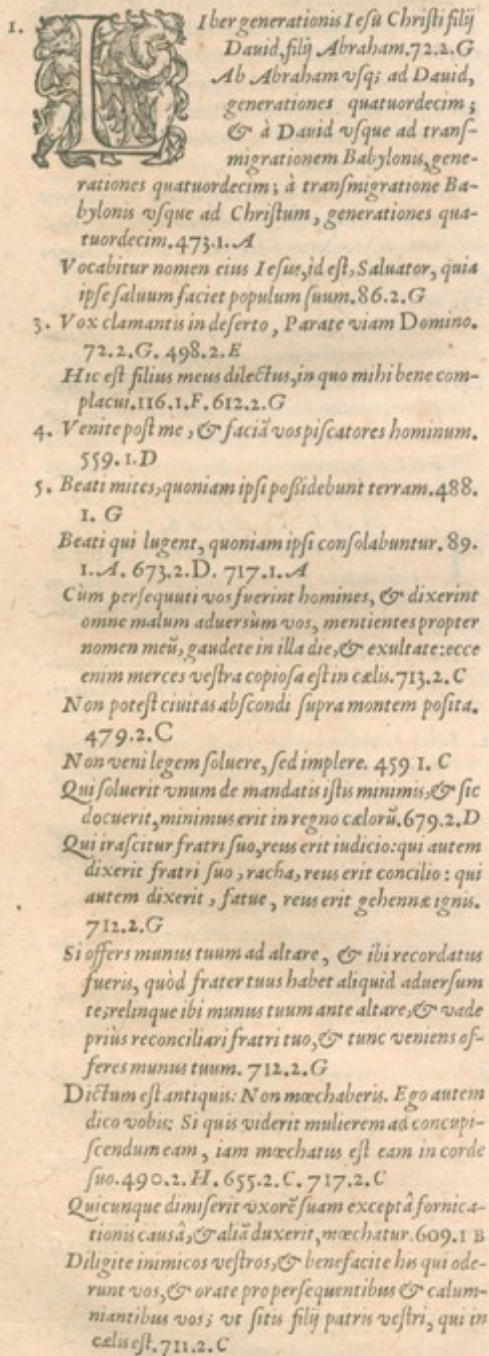 1. LIber generationis Iesu Christi filij
Dauid, filij Abraham. 72.2.G
Ab Abraham vsq; ad Dauid,
generationes quatuordecim;
& à Dauid vsque ad trans-
migrationem Babylonis, gene-
rationes quatuordecim; à transmigratione Ba-
bylonis vsque ad Christum, generationes qua-
tuordecim. 473.1.A
Vocabitur nomen eius Iesus, id est, Saluator, quia
ipse saluum faciet populum suum. 86.2.G
3. Vox clamantis in deserto, Parate viam Domino.
72.2.G. 498.2.E
Hic est filius meus dilectus, in quo mihi bene com-
placui. 116.1.F. 612.2.G
4. Venite post me, & faciã vos piscatores hominum.
559.1.D
5. Beati mites, quoniam ipsi possidebunt terram. 488.
1. G
Beati qui lugent, quoniam ipsi consolabuntur. 89.
1.A. 673.2.D. 717.1.A
Cùm persequuti vos fuerint homines, & dixerint
omne malum aduersùm vos, mentientes propter
nomen meũ, gaudete in illa die, & exultate: ecce
enim merces vestra copiosa est in cælis. 713.2.C
Non potest ciuitas abscondi supra montem posita.
479.2.C
Non veni legem soluere, sed implere. 459 1. C
Qui soluerit vnum de mandatis istis minimis, & sic
docuerit, minimus erit in regno cælorũ. 679.2.D
Qui irascitur fratri suo, reus erit iudicio: qui autem
dixerit fratri suo, racha, reus erit concilio: qui
autem dixerit, fatue, reus erit gehennæ ignis.
712.2.G
Si offers munus tuum ad altare, & ibi recordatus
fueris, quòd frater tuus habet aliquid aduersum
te; relinque ibi munus tuum ante altare, & vade
priùs reconciliari fratri tuo, & tunc veniens of-
feres munus tuum. 712.2.G
Dictum est antiquis: Non mœchaberis. Ego autem
dico vobis; Si quis viderit mulierem ad concupi-
scendum eam, iam mœchatus est eam in corde
suo. 490.2.H. 655.2.C. 717.2.C
Quicunque dimiserit vxorẽ suam exceptâ fornica-
tionis causâ, & aliã duxerit, mœchatur. 609.1 B
Diligite inimicos vestros, & benefacite his qui ode-
runt vos, & orate pro persequentibus & calum-
niantibus vos; vt sitis filij patris vestri, qui in
cælis est. 711.2.C